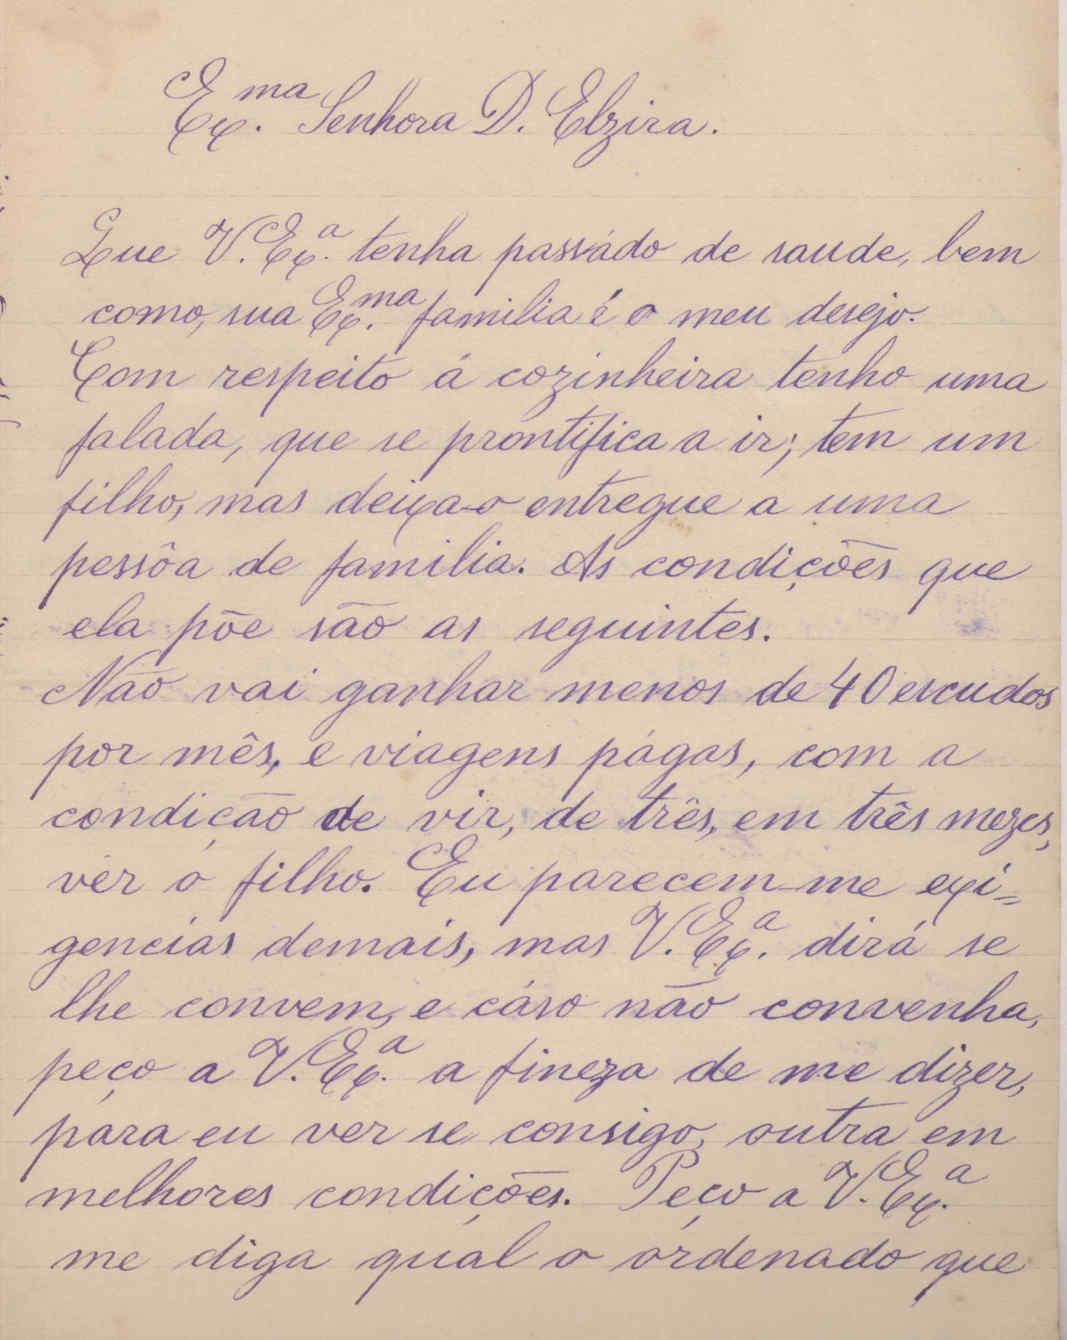 Ex.ma Senhora D. Elzira.
Que V. Ex.a tenha passádo de saude, bem
como, sua Ex.ma familia é o meu desejo.
Com respeito á cozinheira tenho uma
falada, que se prontifica a ir; tem um
filho, mas deixa-o entregue a uma
pessôa de familia. As condições que
ela põe são as seguintes.
Não vai ganhar menos de 40 escudos
por mês, e viagens págas, com a
condição de vir, de três, em três mezes,
vêr o filho. Eu parecem-me exi=
gencias demais, mas V. Ex.a dirá se
lhe convem, e cáso não convenha,
peço a V. Ex.a a fineza de me dizer,
para eu ver se consigo, outra em
melhores condições. Peço a V. Ex.a
me diga quál o ordenado que